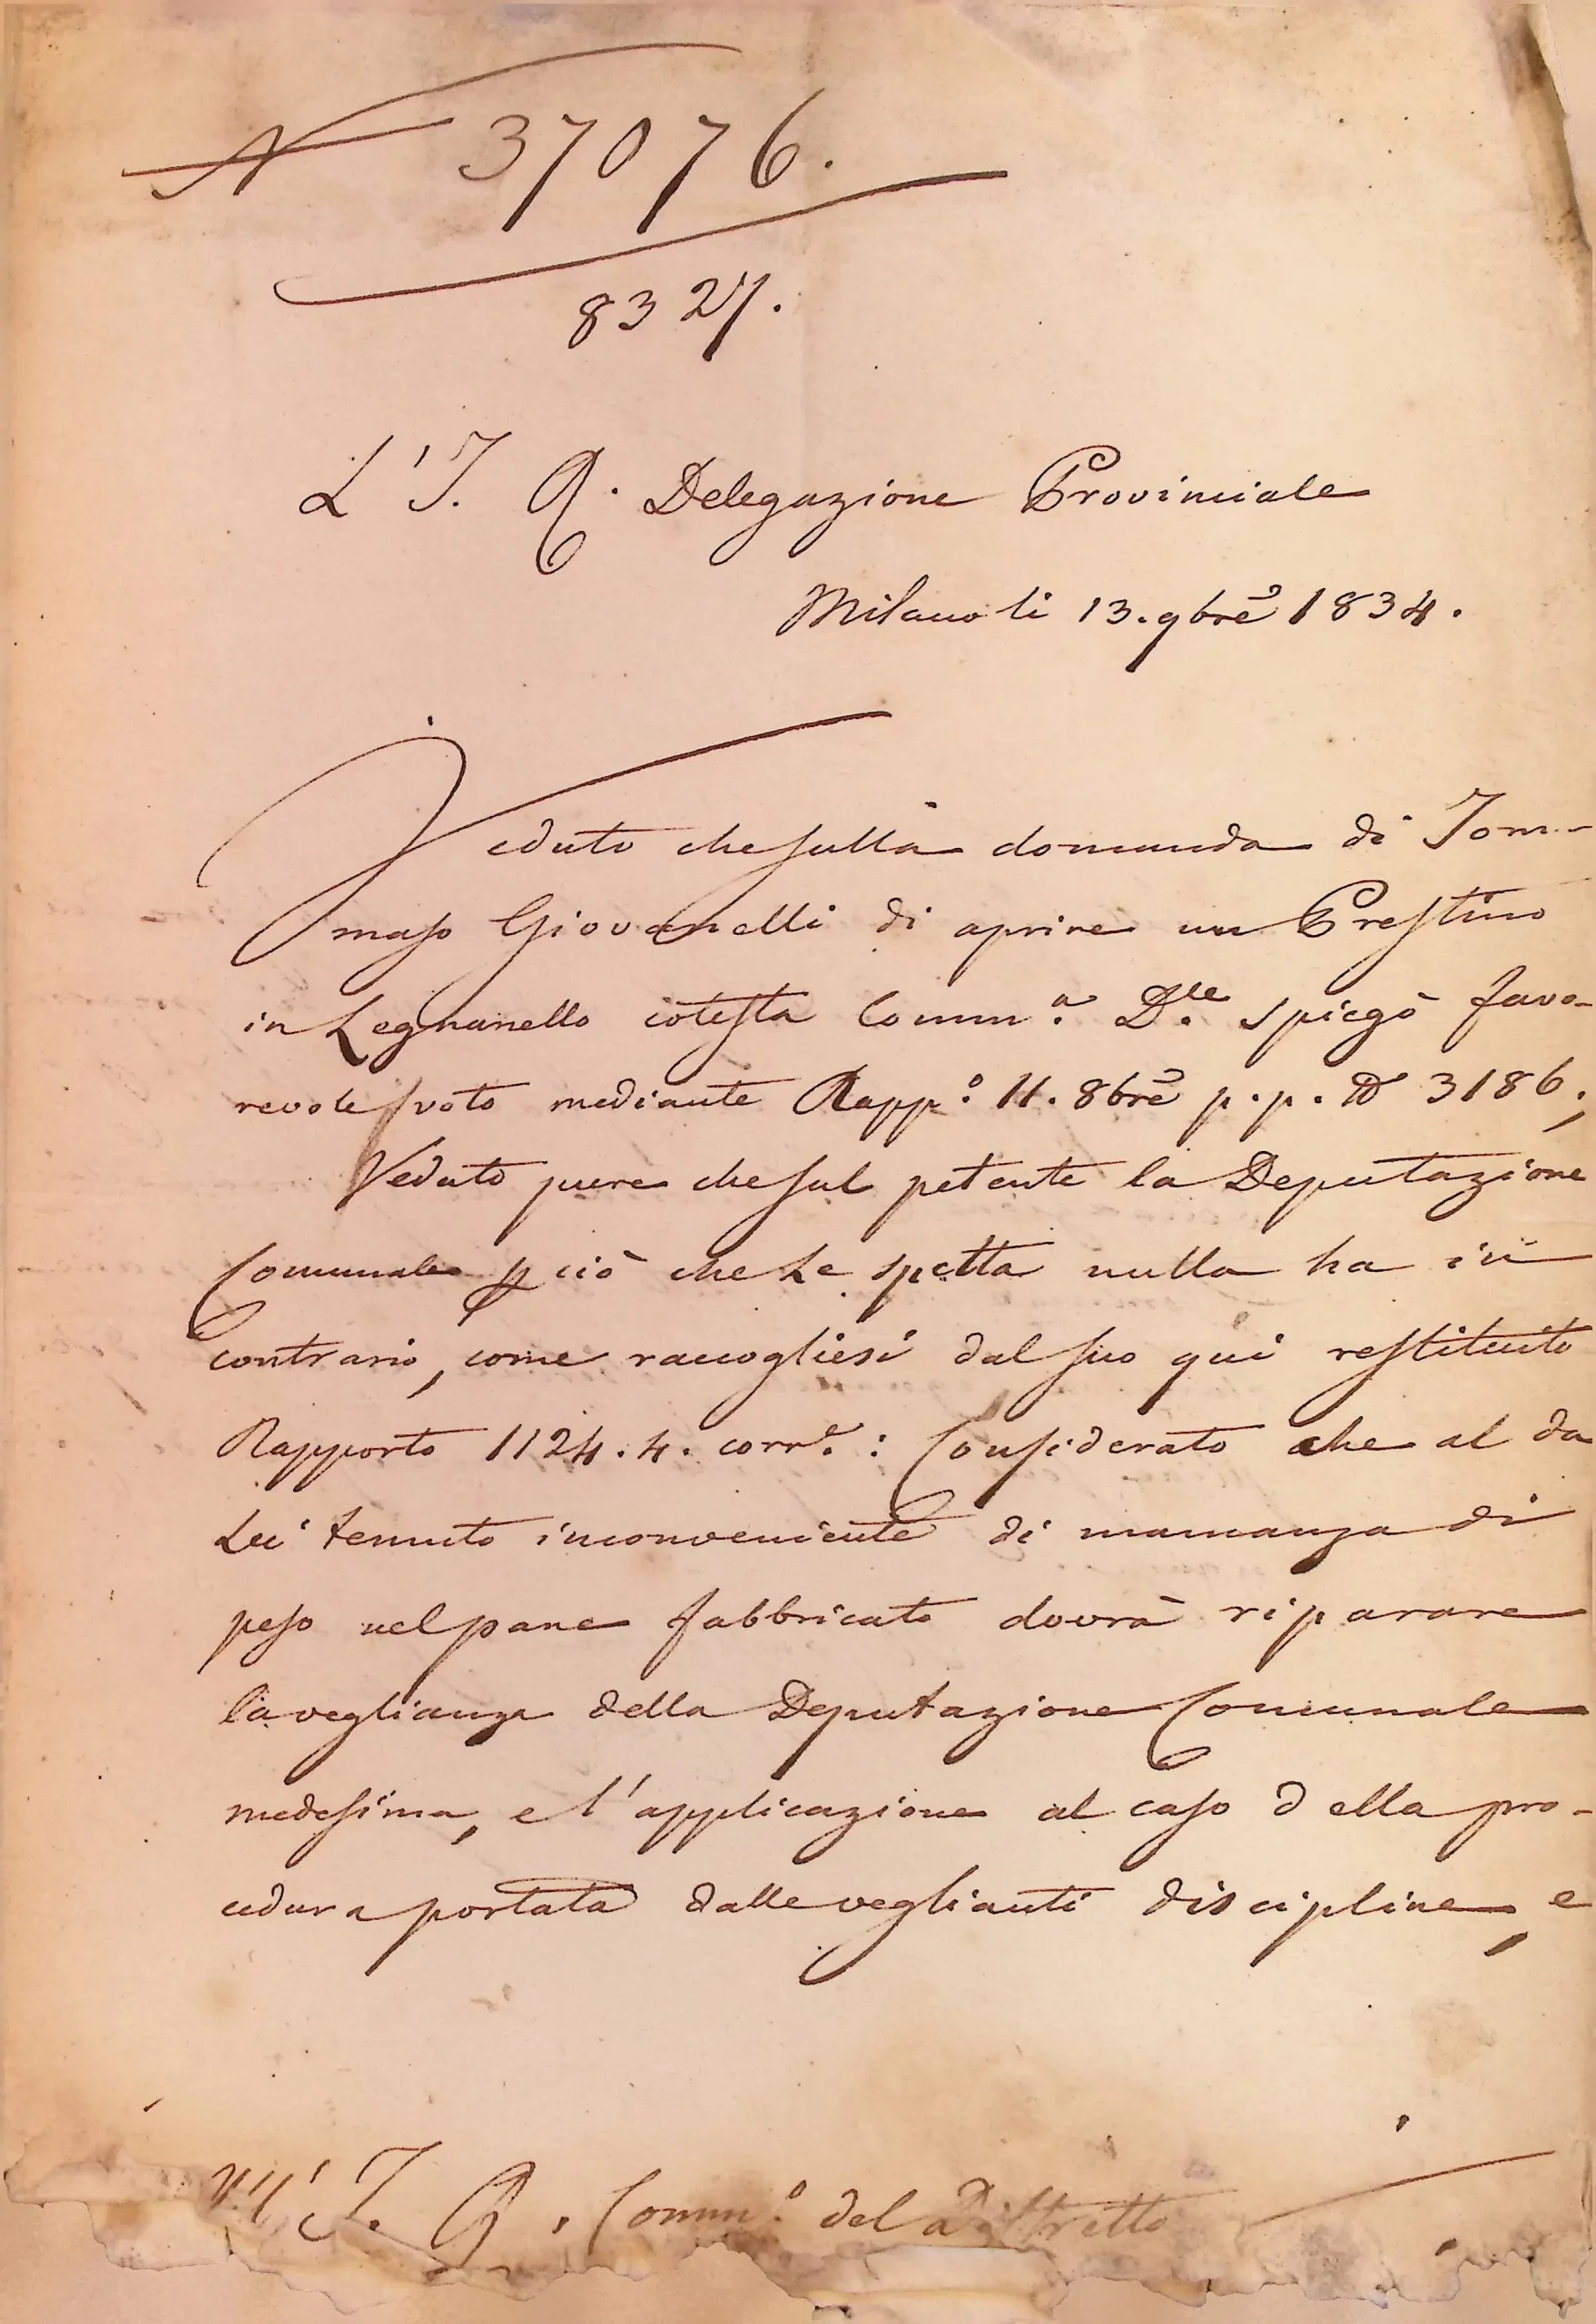 N 37076.
8327.
L'I. R. Delegazione Provinciale
Milano li 13. 9bre 1834.
Veduto che sulla domanda di Tom-
maso Giovanelli di aprire un Prestino
in Legnanello cotesta Comm.a D.le spiegò favo-
revole voto mediante Rapp.o 11. 8bre p. p. N 3186;
Veduto pure che sul petente la Deputazione
Comunale p ciò che Le spetta nulla ha in
contrario, come raccogliesi dal suo qui restituito
Rapporto 1124. 4. corr.e: Considerato che al da
Lei temuto inconveniente di mancanza di
peso nel pane fabbricato dovrà riparare
la veglianza della Deputazione Comunale
medesima, e l'applicazione al caso della pro-
cedura portata dalle veglianti discipline, e
All'I. R. Comm.o del Distretto